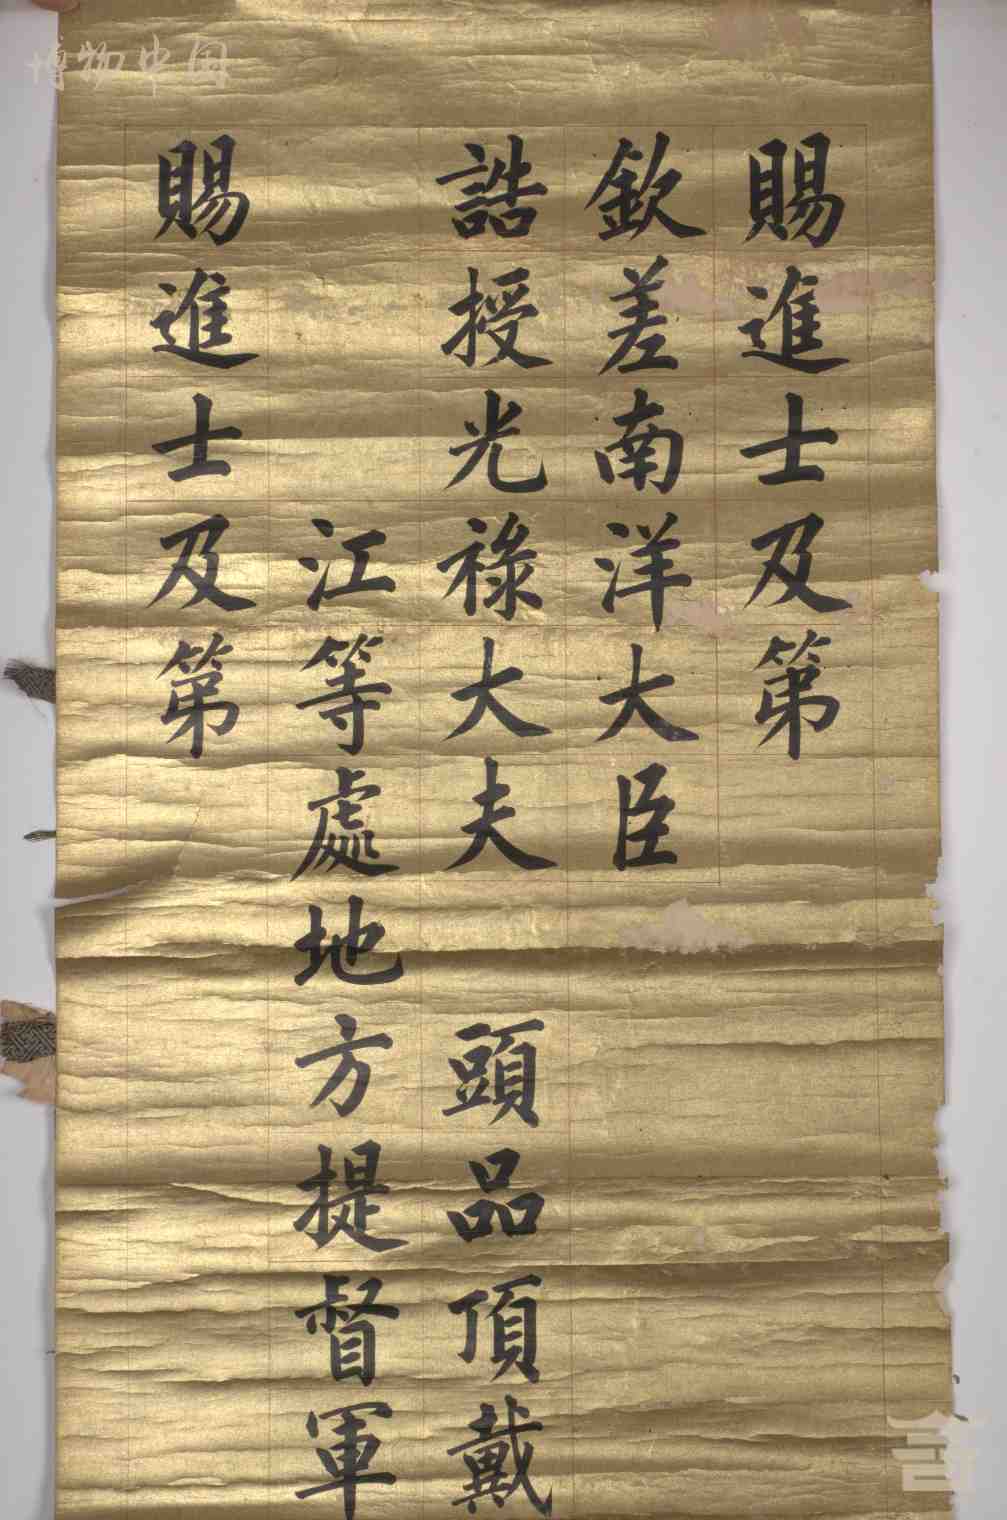 賜進士及第
欽差南洋大臣
誥授光祿大夫 頭品頂戴
江等處地方提督軍
賜進士及第
博物中国